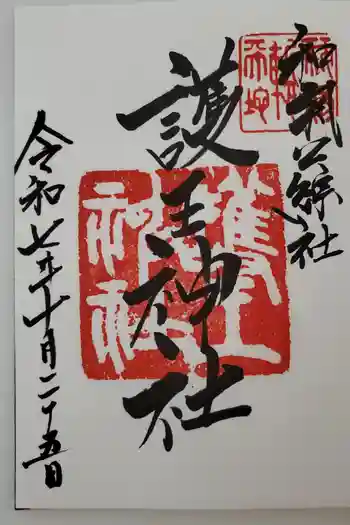 和氣公綜社
護王神社
令和七年十月二十五日
護王神社